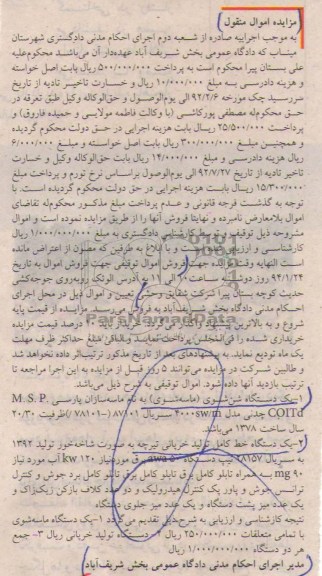 مزایده اموال منقول
به موجب اجراییه صادره از شعبه دوم اجرای احکام مدنی دادگستری شهرستان
میناب که دادگاه عمومی بخش شریف آباد عهده‌دار آن می‌باشد محکوم‌علیه
علی بستان پیرا محکوم است به پرداخت ۵۰۰/۰۰۰/۰۰۰ ریال بابت اصل خواسته
و هزینه دادرسی به مبلغ ۱۰/۰۰۰/۰۰۰ ریال و خسارت تاخیر تادیه از تاریخ
سررسید چک مورخه ۹۲/۲/۶ الی یوم‌الوصول و حق‌الوکاله وکیل طبق تعرفه در
حق محکوم‌له مصطفی پورکاشی (با وکالت فاطمه مولایی و حمیده فاروق) و
پرداخت ۲۵/۵۰۰/۰۰۰ ریال بابت هزینه اجرایی در حق دولت محکوم گردیده
و همچنین مبلغ ۳۰۰/۰۰۰/۰۰۰ ریال بابت اصل خواسته و مبلغ ۶/۰۰۰/۰۰۰
ریال هزینه دادرسی و مبلغ ۱۴/۰۰۰/۰۰۰ ریال بابت حق‌الوکاله وکیل و خسارت
تاخیر تادیه از تاریخ ۹۲/۷/۲۷ الی یوم‌الوصول براساس نرخ تورم و پرداخت مبلغ
۱۵/۳۰۰/۰۰۰ ریال بابت هزینه اجرایی در حق دولت محکوم گردیده است. با
توجه به گذشت فرجه قانونی و عدم پرداخت مبلغ مذکور محکوم‌له تقاضای
اموال بلامعارض نامبرده و نهایتا فروش آنها را از طریق مزایده نموده است و اموال
مشروحه ذیل توقیف و توسط کارشناس دادگستری به مبلغ ۱/۰۰۰/۰۰۰/۰۰۰ ریال
کارشناسی و ارزیابی و با ابلاغ به طرفین که مصون از اعتراض مانده
است النهایه وقت جهت فروش اموال توقیفی جهت فروش اموال به تاریخ
۹۴/۱/۲۴ روز دوشنبه ساعت ۱۰ الی ۱۱ به آدرس الوتک روبه‌روی جوجه‌کشی
حدیث کوچه بستان پیرا شرکت تعیین و اموال ذیل در محل اجرای
احکام مدنی دادگاه بخش شریف‌آباد به فروش می‌رسد مزایده از قیمت پایه
شروع و به بالاترین درصد قیمت مزایده
خریداری شده را فی‌المجلس پرداخت نماید و مابقی مبلغ حداکثر ظرف مهلت
یک ماه تودیع نماید. به پیشنهادهای بعد از تاریخ مذکور ترتیب‌اثر داده نخواهد شد
و طالبین شرکت در مزایده می‌توانند ۵ روز قبل از مزایده به این اجرا مراجعه تا
ترتیب بازدید آنها داده شود. اموال توقیفی به شرح ذیل می‌باشد.
۱-یک دستگاه شن‌شوی (ماسه‌شوی) به نام ماسه‌سازان پارسی M. S. P.
COlTd چدنی مدل ۴۰۰۰sw/m سریال ۸۷۰۱ (۷۸۱۰۱-) ظرفیت ۲۰/۳۰
سال ساخت ۱۳۷۸ می‌باشد.
۲-یک دستگاه خط کامل تولید خرپایی تیرچه به صورت شاخه‌خور تولید ۱۳۹۲
به سریال ۲۸۱۵۷ dwa ۵ مورد نیاز kw ۱۲۰ آب مورد نیاز
mg ۹۰ به همراه تابلو کامل برق تابلو کامل برد جوش و کنترل
ترانس جوش و پاور پک کنترل هیدرولیک و دو عدد کلاف بازکن زیگزاگ و
یک عدد میز پشت دستگاه و یک عدد میز جلوی دستگاه
نتیجه کارشناسی و ارزیابی به شرح ذیل تقدیم می‌گردد ۱-یک دستگاه ماسه‌شوی
با تمامی متعلقات ۲۵۰/۰۰۰/۰۰۰ ریال ۲- دستگاه تولید خرپایی ریال ۳- جمع
هر دو دستگاه ۱/۰۰۰/۰۰۰/۰۰۰ ریال
مدیر اجرای احکام مدنی دادگاه عمومی بخش شریف‌آباد